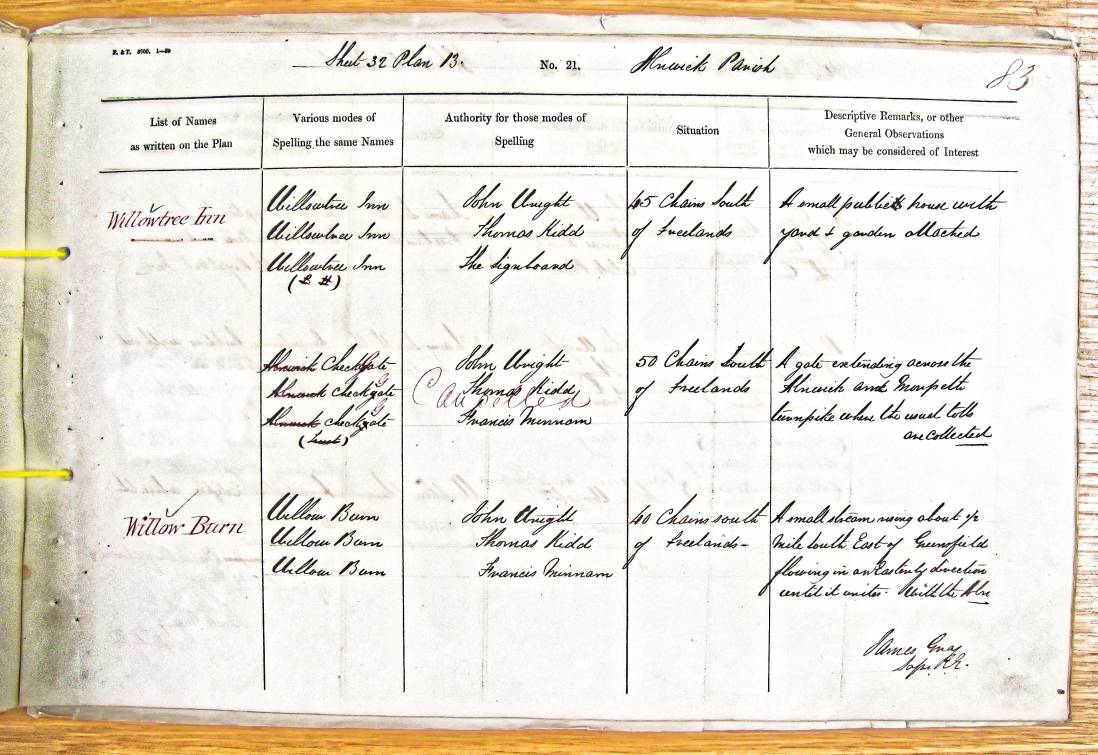 Sheet 32 Plan B. No. 21. Alnwick Parish 83
List of Names
as written on the Plan
Various modes of
Spelling the same Names
Authority for those modes of
Spelling
Situation
Descriptive Remarks, or other
General Observations
which may be considered of Interest
Willowtree Inn
Willowtree Inn
Willowtree Inn
Willowtree Inn
John Wright
Thomas Kidd
The Signboard
45 Chains South
of Freelands
A small public house with
yard & garden attached
Alnwick Checkgate
Alnwick Checkgate
Alnwick Checkgate
John Wright
Thomas Kidd
Francis Minnam
Cancelled
50 Chains South
of Freelands
A gate extending across the
Alnwick and Morpeth
turnpike where the usual tolls
are collected
Willow Burn
Willow Burn
Willow Burn
Willow Burn
John Wright
Thomas Kidd
Francis Minnam
40 Chains south
of Freelands-
A small stream rising about ½
mile South East of Greensfield
flowing in an Easterly direction
until it unites with the Aln
James Gray
Sapr. R.E.